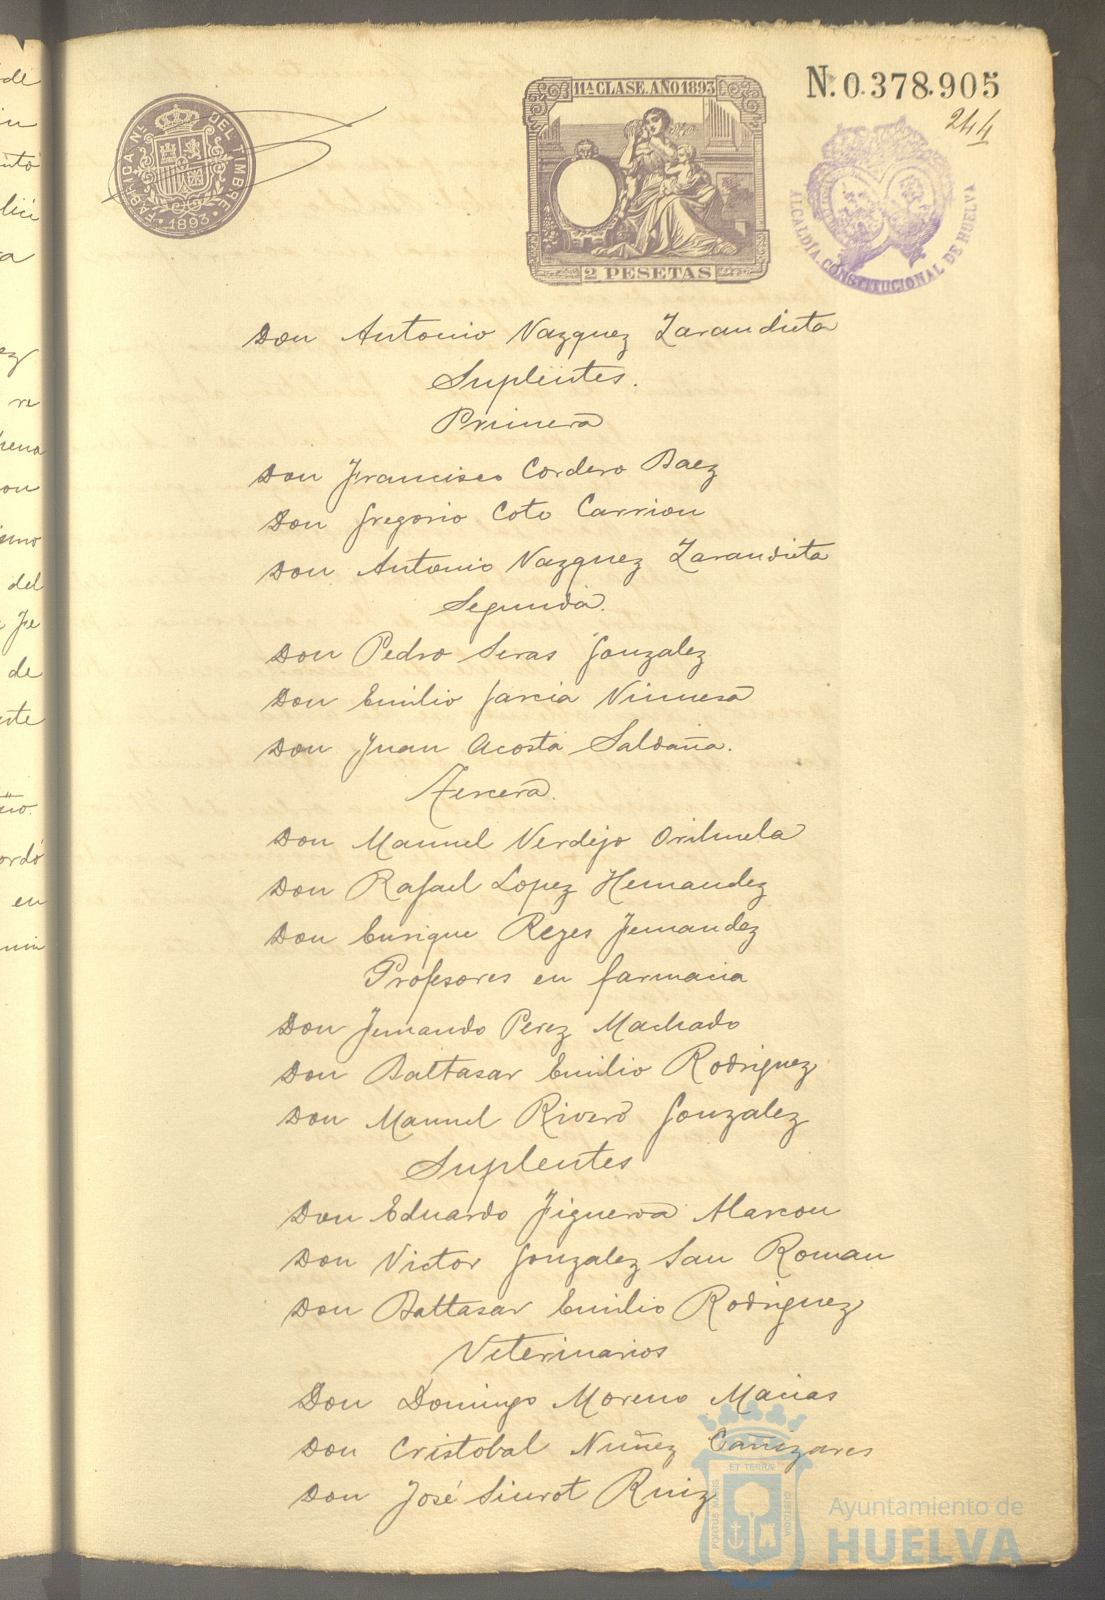 de
en
nto
lici
a
ez
re
hena
on
ismo
del
Fe
de
nte
ordó
en
FABRICA NL. DEL TIMBRE
1893
11ª CLASE. AÑO 1893
2 PESETAS
N. 0.378.905
244
ALCALDÍA CONSTITUCIONAL DE HUELVA
Don Antonio Vazquez Zarandieta
Suplentes.
Primera
Don Francisco Cordero Baez
Don Gregorio Coto Carrion
Don Antonio Vazquez Zarandieta
Segunda.
Don Pedro Seras Gonzalez
Don Emilio Garcia Vinuesa
Don Juan Acosta Saldaña.
Tercera.
Don Manuel Verdejo Orihuela
Don Rafael Lopez Hernandez
Don Enrique Reyes Fernandez
Profesores en farmacia
Don Fernando Perez Machado
Don Baltasar Emilio Rodriguez
Don Manuel Rivero Gonzalez
Suplentes
Don Eduardo Figueroa Alarcon
Don Victor Gonzalez San Roman
Don Baltasar Emilio Rodriguez
Veterinarios
Don Domingo Moreno Macias
Don Cristobal Nuñez Cañizares
Don José Siurot Ruiz
PORTUS MARIS ET TERRÆ CUSTODIA
Ayuntamiento de
HUELVA